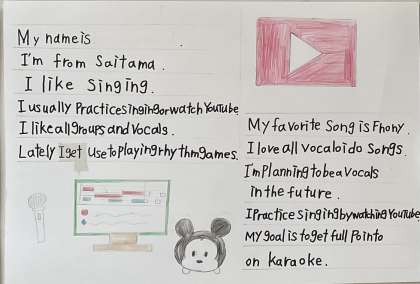 My name is .
I'm from Saitama.
I like Singing.
I usually Practice singing or watch YouTube
I like all groups and Vocals.
Lately I get Use to Playing rhythm games.
My favorite Song is Phony.
I love all Vocaloido Songs.
I'm Planning to be a Vocals
in the future.
I Practice singing by watching YouTube
MY goal is to get full Pointo
on karaoke.